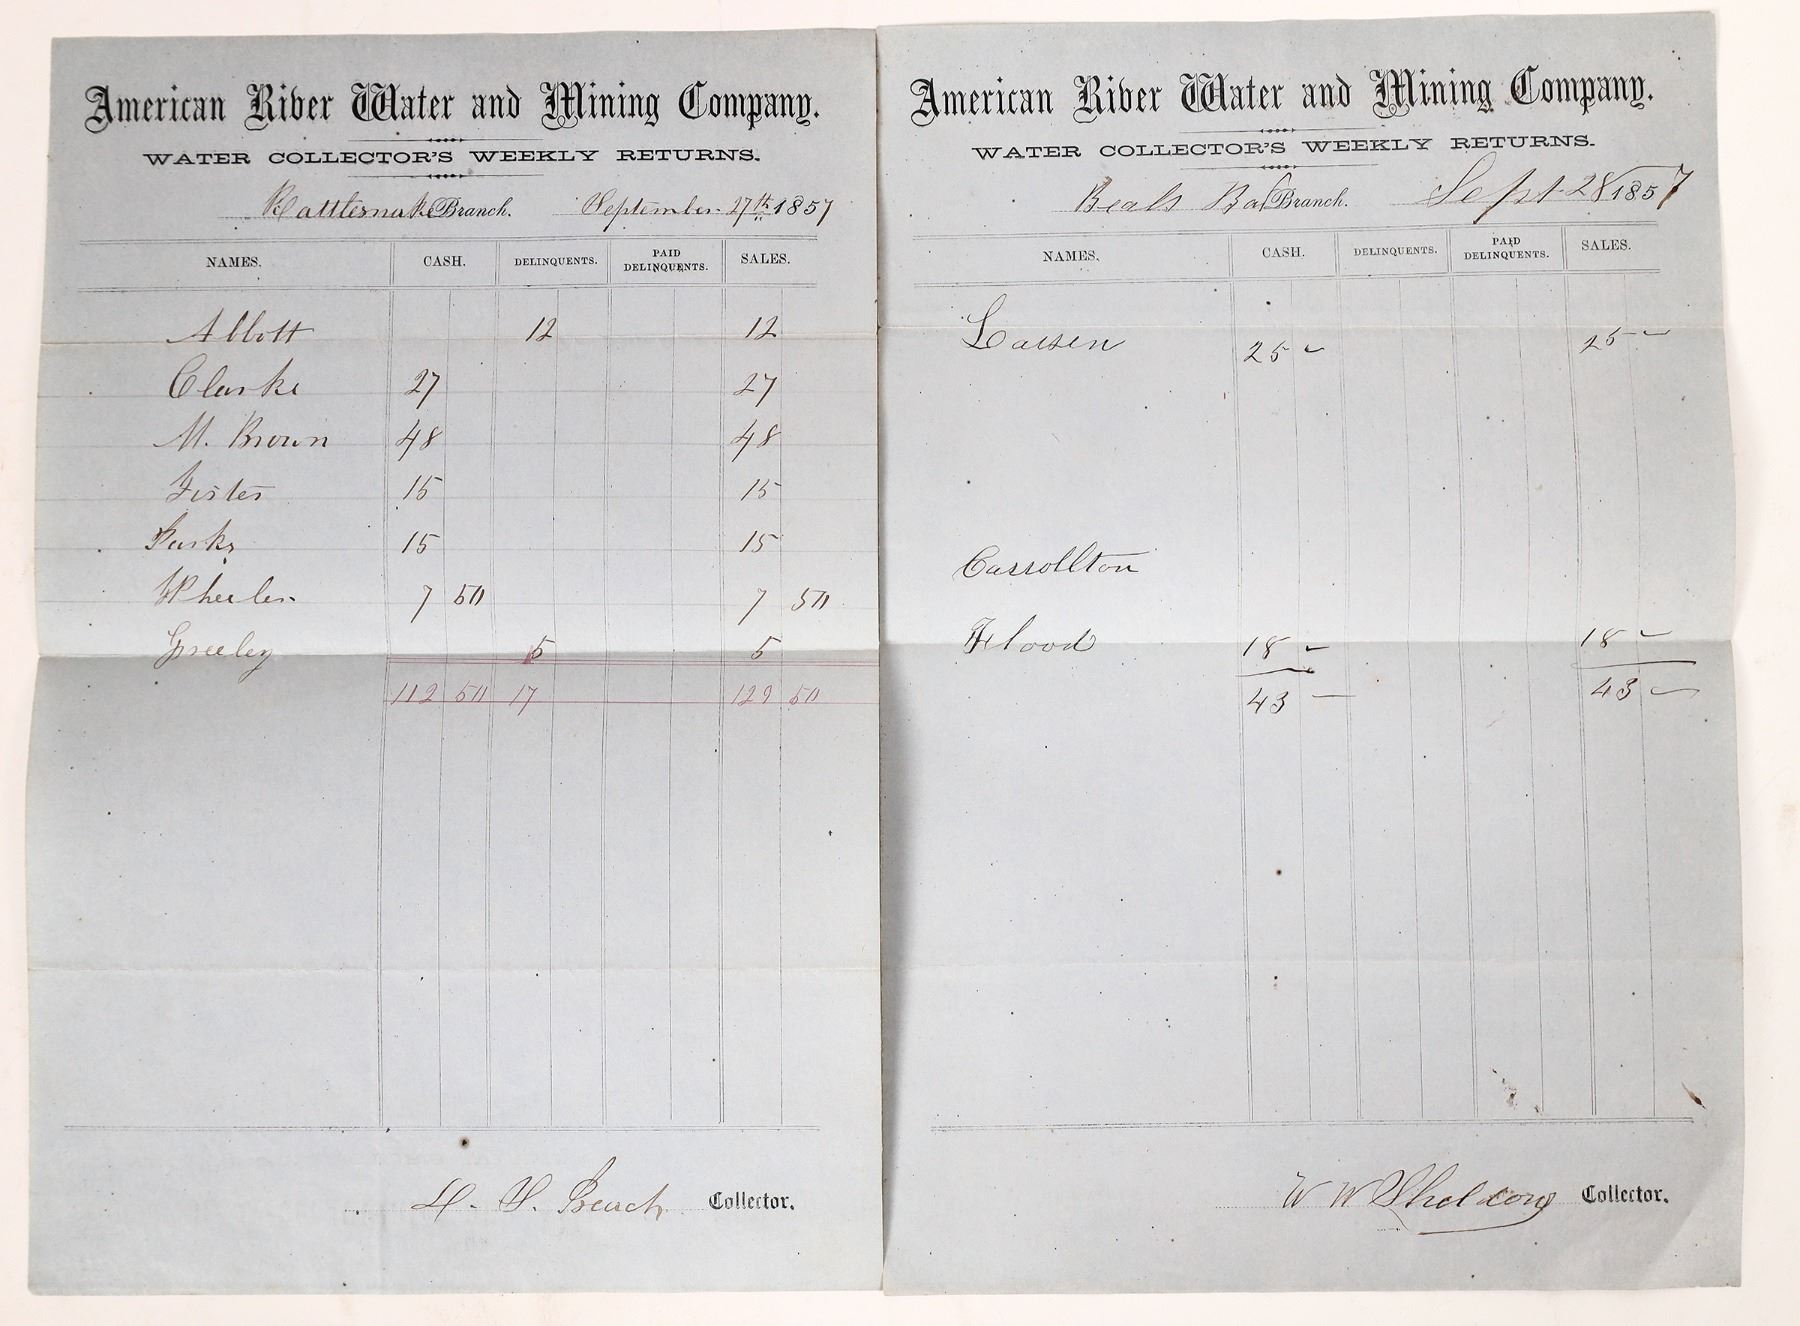 American River Water and Mining Company.
WATER COLLECTOR'S WEEKLY RETURNS.
Rattlesnake Branch. September 27th 1857
NAMES. CASH. DELINQUENTS. PAID DELINQUENTS. SALES.
Abbott 12 12
Clarke 27 27
M. Brown 48 48
15 15
Parks 15 15
Wheeler 7 50 7 50
Greeley 5 5
112 50 17 129 50
Beach Collector.
American River Water and Mining Company.
WATER COLLECTOR'S WEEKLY RETURNS.
Beals Bar Branch. Sept 28 1857
NAMES. CASH. DELINQUENTS. PAID DELINQUENTS. SALES.
Larsen 25 - 25 -
Carrollton
Flood 18 - 18 -
43 - 43 -
W W Sheldon Collector.